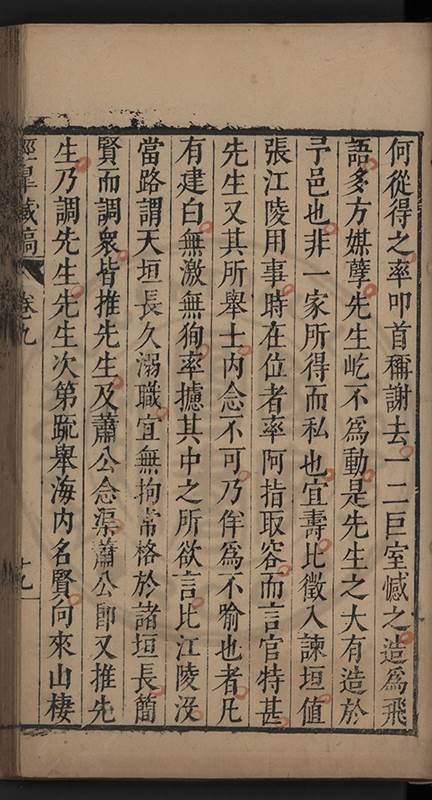 何從得之率叩首稱謝去一二巨室憾之造爲飛
語多方媒孽先生屹不爲動是先生之大有造於
予邑也非一家所得而私也宜壽比徵入諫垣值
張江陵用事時在位者率阿指取容而言官特甚
先生又其所舉士內念不可乃佯爲不喻也者凡
有建白無激無狥率攄其中之所欲言比江陵沒
當路謂天垣長久溺職宜無拘常格於諸垣長簡
賢而調衆皆推先生及蕭公念渠蕭公卽又推先
生乃調先生先生次第疏舉海內名賢向來山棲
涇臯藏稿 卷九 十九